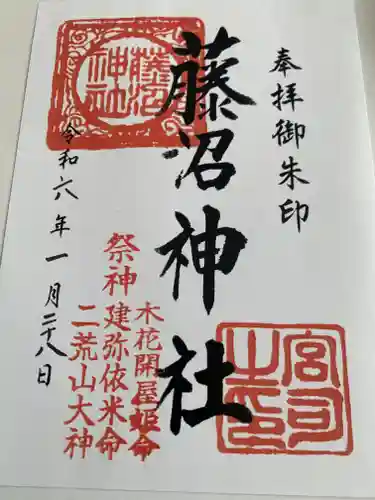 奉拝御朱印
藤沼神社
藤沼
神社
宮司
之印
令和六年一月二十八日
祭神
木花開屋姫命
建弥依米命
二荒山大神